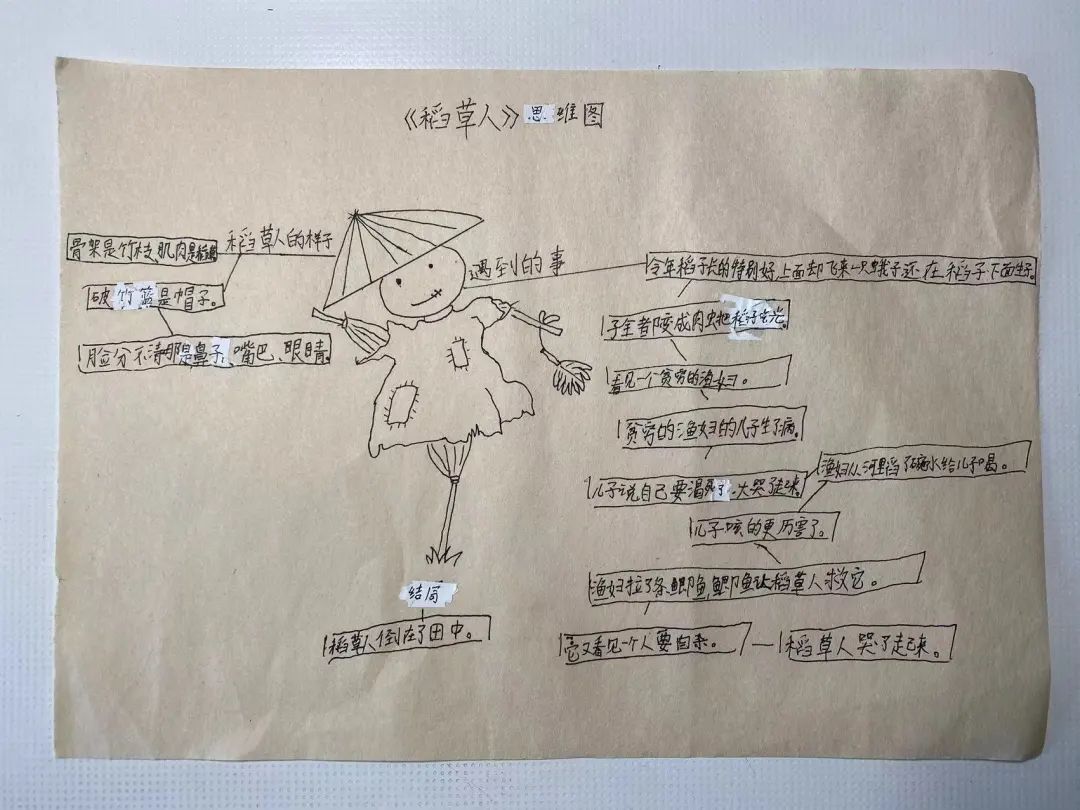 《稻草人》思维图
稻草人的样子
骨架是竹枝,肌肉是稻草
破竹篮是帽子。
脸分不清那是鼻子、嘴巴、眼睛。
遇到的事
今年稻子长的特别好,上面却飞来一只蛾子还在稻子下面生子。
子全都变成肉虫把稻子吃光。
看见一个贫穷的渔妇。
贫穷的渔妇的儿子生了病。
儿子说自己要渴死了,大哭了起来。
渔妇从河里舀了碗水给儿子喝。
儿子咳的更厉害了。
渔妇拉了条鲫鱼,鲫鱼让稻草人救它。
又看见一个人要自杀。
稻草人哭了起来。
结局
稻草人倒在了田中。